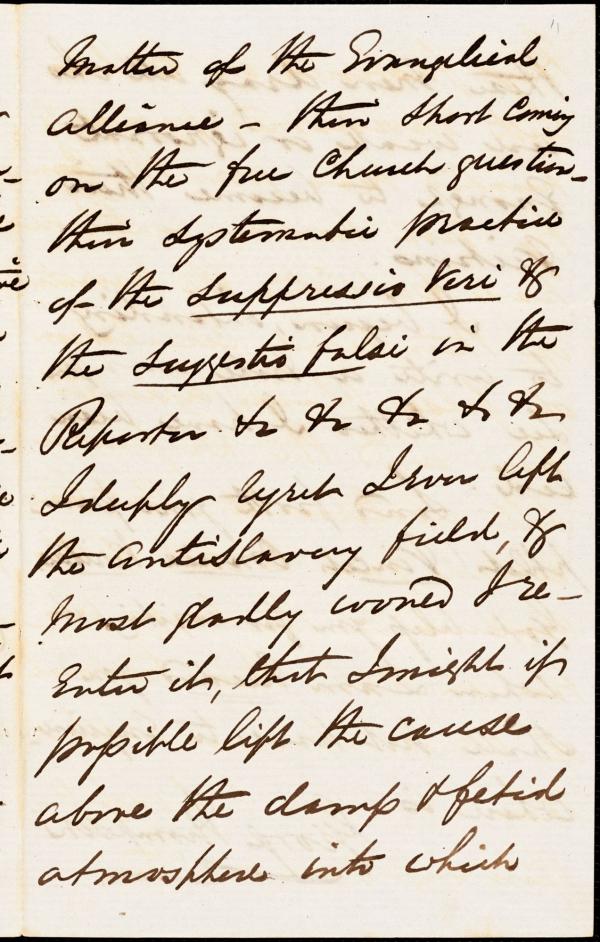 Matter of the Evangelical
Alliance – their short coming
on the free Church question –
their systematic practice
of the Suppressio Veri &
the Suggestio falsi in the
Reporter &c &c &c &c &c
I deeply regret I ever left
the antislavery field, &
most gladly would I re–
enter it, that I might if
possible lift the cause
above the damp & fetid
atmosphere into which